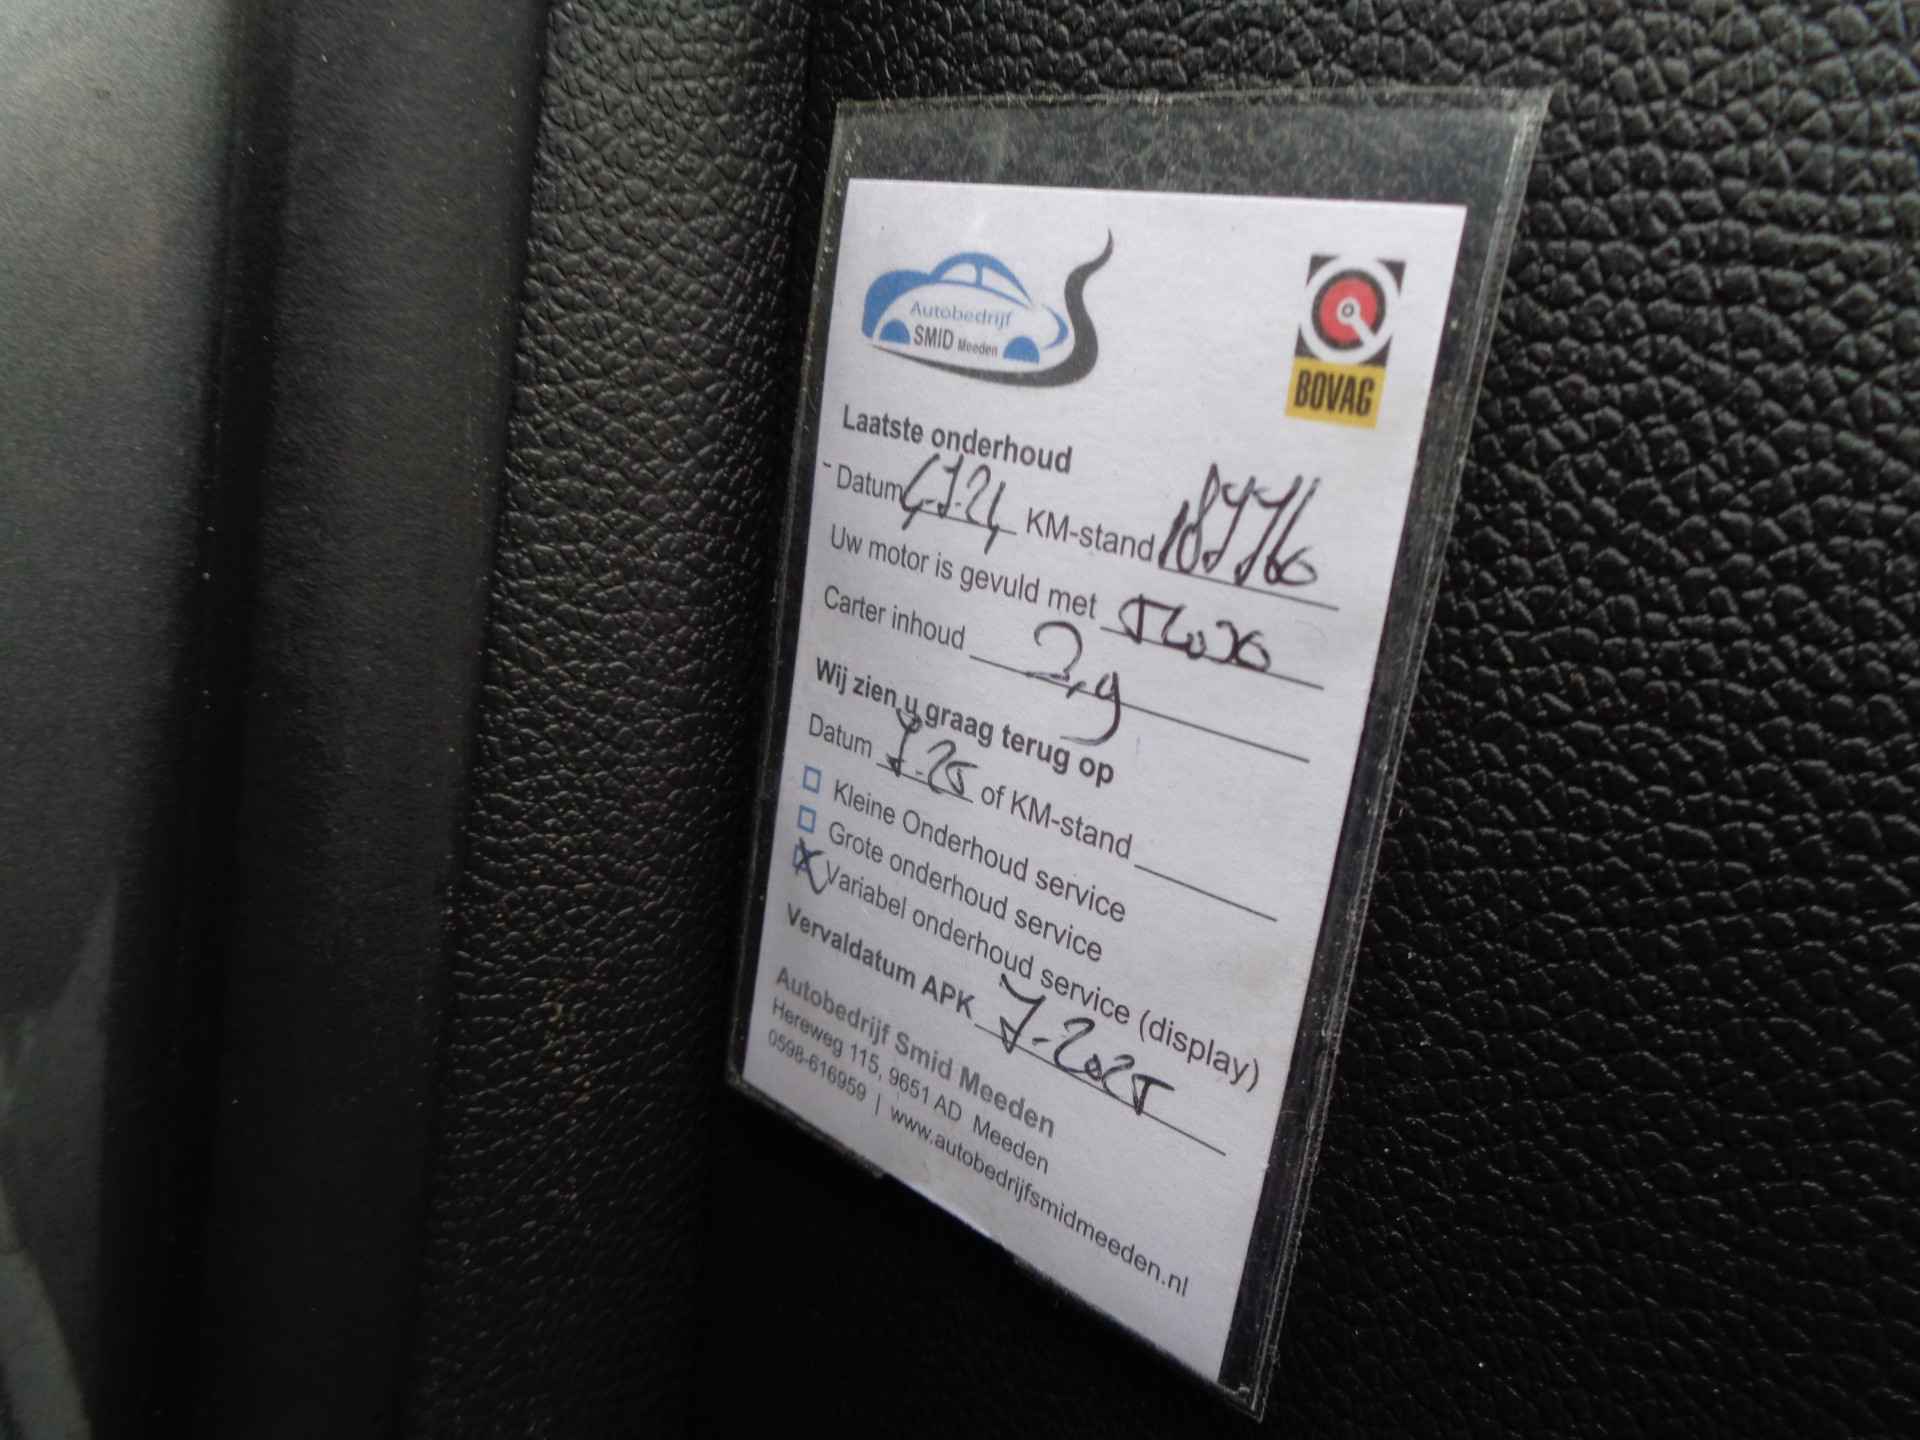 Autobedrijf
SMID Meeden
BOVAG
Laatste onderhoud
Datum 4.7.24 KM-stand
Uw motor is gevuld met
Carter inhoud 2,9
Wij zien u graag terug op
Datum 7-25 of KM-stand
Kleine Onderhoud service
Grote onderhoud service
X Variabel onderhoud service (display)
Vervaldatum APK 7-2025
Autobedrijf Smid Meeden
Hereweg 115, 9651 AD Meeden
0598-616959 | www.autobedrijfsmidmeeden.nl